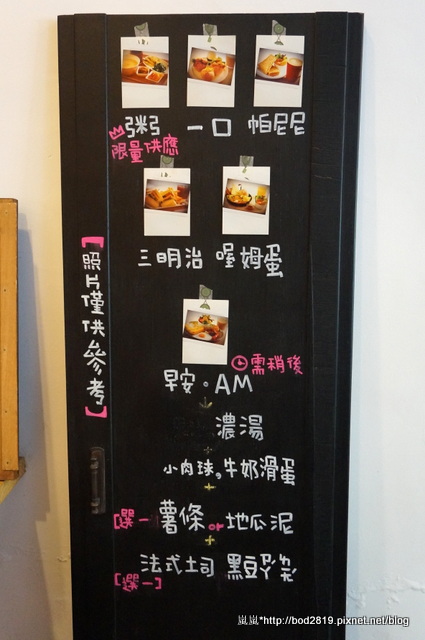 粥 一口 帕尼尼
限量供應
三明治 喔姆蛋
【照片僅供參考】
需稍後
早安。AM
濃湯
+
小肉球,牛奶滑蛋
+
[選一] 薯條 or 地瓜泥
+
法式土司 黑豆
[選一]
嵐嵐*http://bod2819.pixnet.net/blog